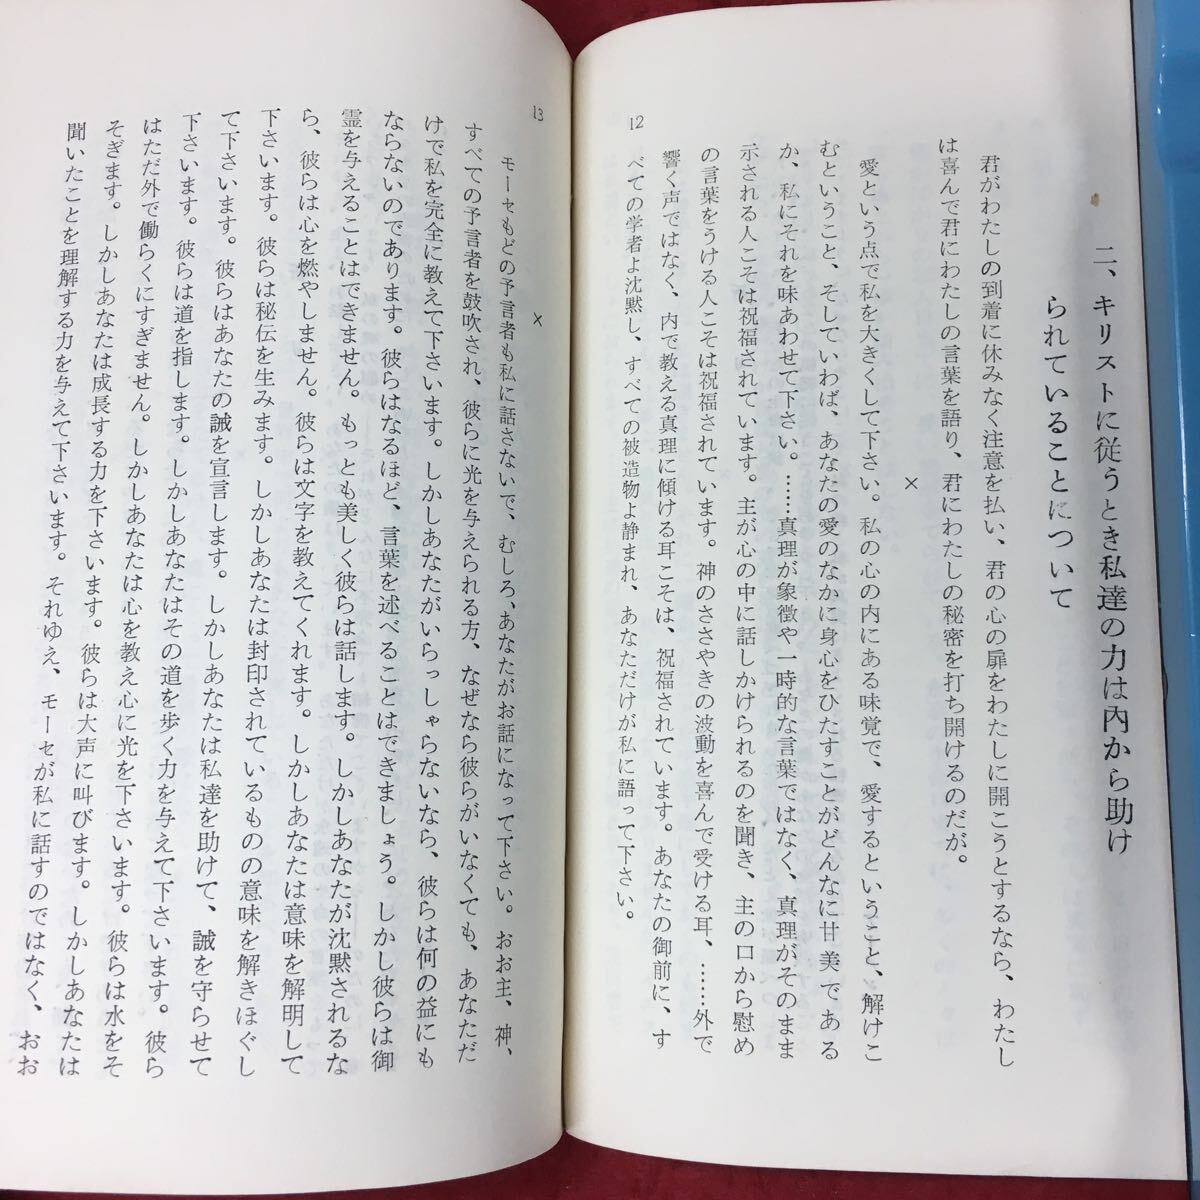 二、キリストに従うとき私達の力は内から助け
られていることについて
君がわたしの到着に休みなく注意を払い、君の心の扉をわたしに開こうとするなら、わたし
は喜んで君にわたしの言葉を語り、君にわたしの秘密を打ち開けるのだが。
×
愛という点で私を大きくして下さい。私の心の内にある味覚で、愛するということ、解けこ
むということ、そしていわば、あなたの愛のなかに身心をひたすことがどんなに甘美である
か、私にそれを味あわせて下さい。……真理が象徴や一時的な言葉ではなく、真理がそのまま
示される人こそは祝福されています。主が心の中に話しかけられるのを聞き、主の口から慰め
の言葉をうける人こそは祝福されています。神のささやきの波動を喜んで受ける耳、……外で
響く声ではなく、内で教える真理に傾ける耳こそは、祝福されています。あなたの御前に、す
べての学者よ沈黙し、すべての被造物よ静まれ、あなただけが私に語って下さい。
12
×
モーセもどの予言者も私に話さないで、むしろ、あなたがお話になって下さい。おお主、神、
すべての予言者を鼓吹され、彼らに光を与えられる方、なぜなら彼らがいなくても、あなただ
けで私を完全に教えて下さいます。しかしあなたがいらっしゃらないなら、彼らは何の益にも
ならないのであります。彼らはなるほど、言葉を述べることはできましょう。しかし彼らは御
霊を与えることはできません。もっとも美しく彼らは話します。しかしあなたが沈黙されるな
ら、彼らは心を燃やしません。彼らは文字を教えてくれます。しかしあなたは意味を解明して
下さいます。彼らは秘伝を生みます。しかしあなたは封印されているものの意味を解きほぐし
て下さいます。彼らはあなたの誡を宣言します。しかしあなたは私達を助けて、誡を守らせて
下さいます。彼らは道を指します。しかしあなたはその道を歩く力を与えて下さいます。彼ら
はただ外で働らくにすぎません。しかしあなたは心を教え心に光を下さいます。彼らは水をそ
そぎます。しかしあなたは成長する力を下さいます。彼らは大声に叫びます。しかしあなたは
聞いたことを理解する力を与えて下さいます。それゆえ、モーセが私に話すのではなく、おお
13